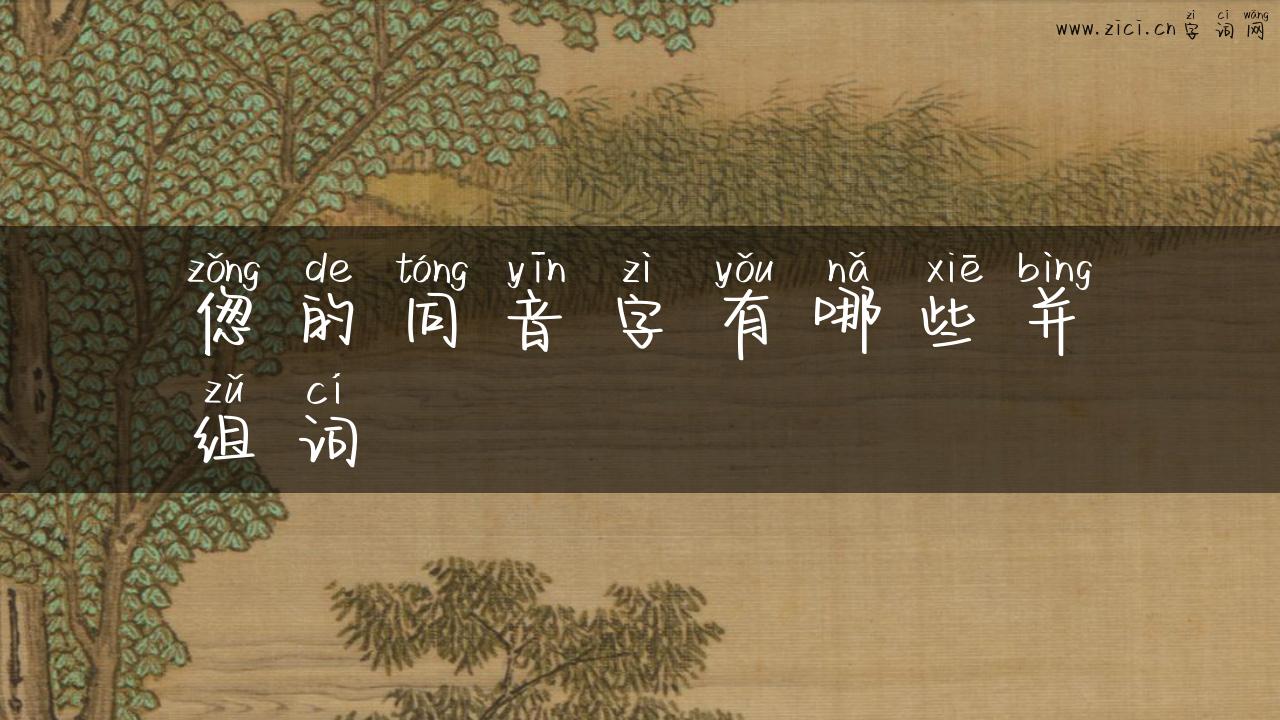 zì cí wǎng
www.zici.cn字词网
zǒng de tóng yīn zì yǒu nǎ xiē bìng
偬的同音字有哪些并
zǔ cí
组词